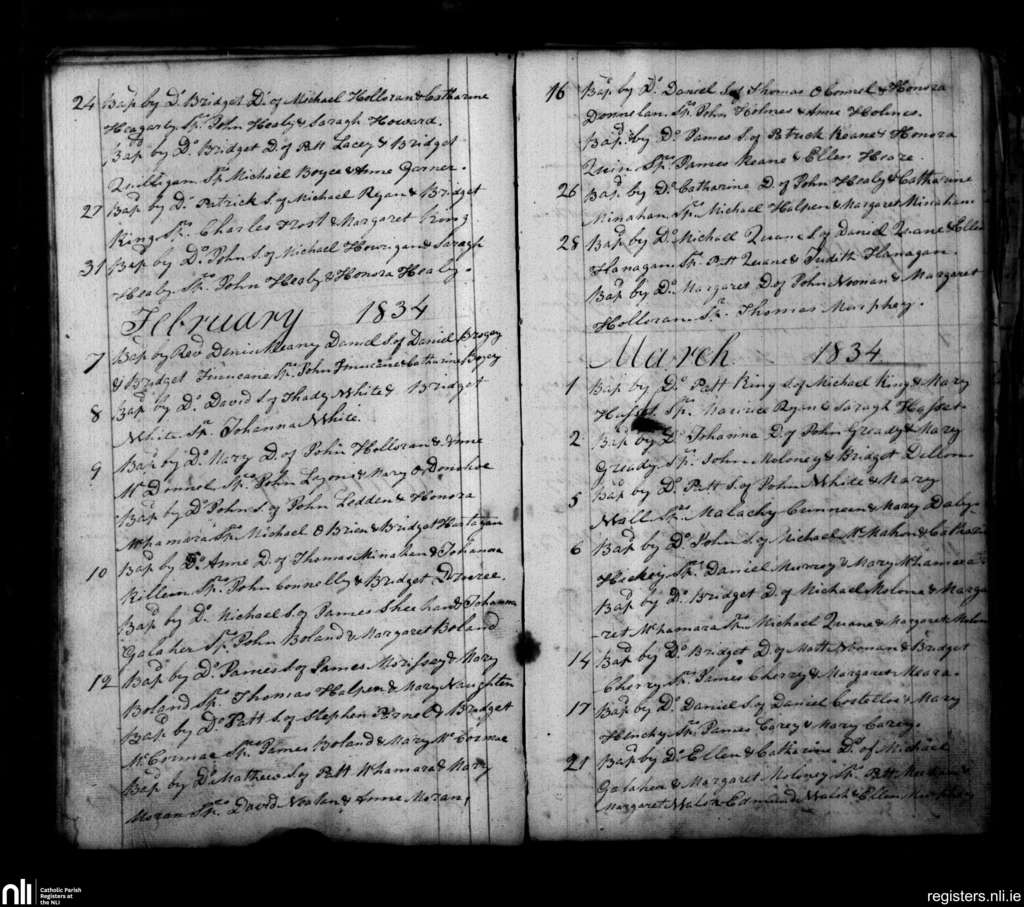 24 Bapd by Do Bridget Dr of Michael Holloran & Catharine
Heagarty Sprs John Healy & Saragh Howard.
Bapd by Do Bridget D. of Patt Lacey & Bridget
Quilligan Sprs Michael Boyce & Anne Garner.
27 Bapd by Do Patrick S. of Michael Ryan & Bridget
King Sprs Charles Frost & Margaret King
31 Bapd by Do John S. of Michael Hourigan & Saragh
Healy Sprs John Healy & Honora Healy.
February 1834
7 Bapd by Revd Denis Meany Daniel S. of Daniel Brogey
& Bridget Finucane Sprs John Finucane & Catharine
8 Bapd by Do David S. of Thady White & Bridget
White Spr Johanna White.
9 Bapd by Do Mary D. of John Holloran & Anne
Mc Donnol Sprs John Lyons & Mary O Donohoe
Bapd by Do John S. of John Ledden & Honora
Mc hamara Sprs Michael O Brien & Bridget Hartagan
10 Bapd by Do Anne D. of Thomas Minahan & Johanna
Killein Sprs John Connelly & Bridget
Bapd by Do Michael S. of James Sheehan & Johanna
Galaher Sprs John Boland & Margaret Boland
12 Bapd by Do James S. of James Morissey & Mary
Boland Sprs Thomas Halpen & Mary Naughten
Bapd by Do Patt S. of Stephen & Bridget
Mc Cormac Sprs James Boland & Mary Mc Cormac
Bapd by Do Mathew S. of Patt Mc hamara & Mary
Moran Sprs David Noalan & Anne Moran,
16 Bapd by Do Daniel S. of Thomas O Connel & Honora
Donnolan Sprs John Holmes & Anne Holmes.
Bapd by Do James S. of Patrick Keane & Honora
Quin Sprs James Keane & Ellen Hoare.
26 Bapd by Do Catharine D. of John Healy & Catharine
Minahan Sprs Michael Halpen & Margaret Minahan
28 Bapd by Do Michael Quane S. of Daniel Quane & Ellen
Flanagan Sprs Patt Quane & Judith Flanagan.
Bapd by Do Margaret D. of John Noonan & Margaret
Holloran Spr Thomas Murphey.
March 1834
1 Bapd by Do Patt King S. of Michael King & Mary
Sprs Maurice Ryan & Saragh Hasset
2 Bapd by Do Johanna D. of John Gready & Mary
Gready Sprs John Moloney & Bridget Dillon
5 Bapd by Do Patt S. of John White & Mary
Wall Sprs Malachy Cunneen & Mary Daly
6 Bapd by Do John S. of Michael Mc Mahon & Catharine
Hickey Sprs Daniel Murrey & Mary Mc hamara
Bapd by Do Bridget D. of Michael Molona & Marga
-ret Mc hamara Sprs Michael Quane & Margaret
14 Bapd by Do Bridget D of Matt Noonan & Bridget
Cherry Sprs James Cherry & Margaret Meara.
17 Bapd by Do Daniel S. of Daniel Costello & Mary
Henchy Sprs James Carey & Mary Carey.
21 Bapd by Do Ellen & Catharine Drs of Michael
Galaher & Margaret Moloney Sprs Patt &
Margaret Walsh Edmund Walsh & Ellen Murphey
nli Catholic Parish
Registers at
the NLI
registers.nli.ie